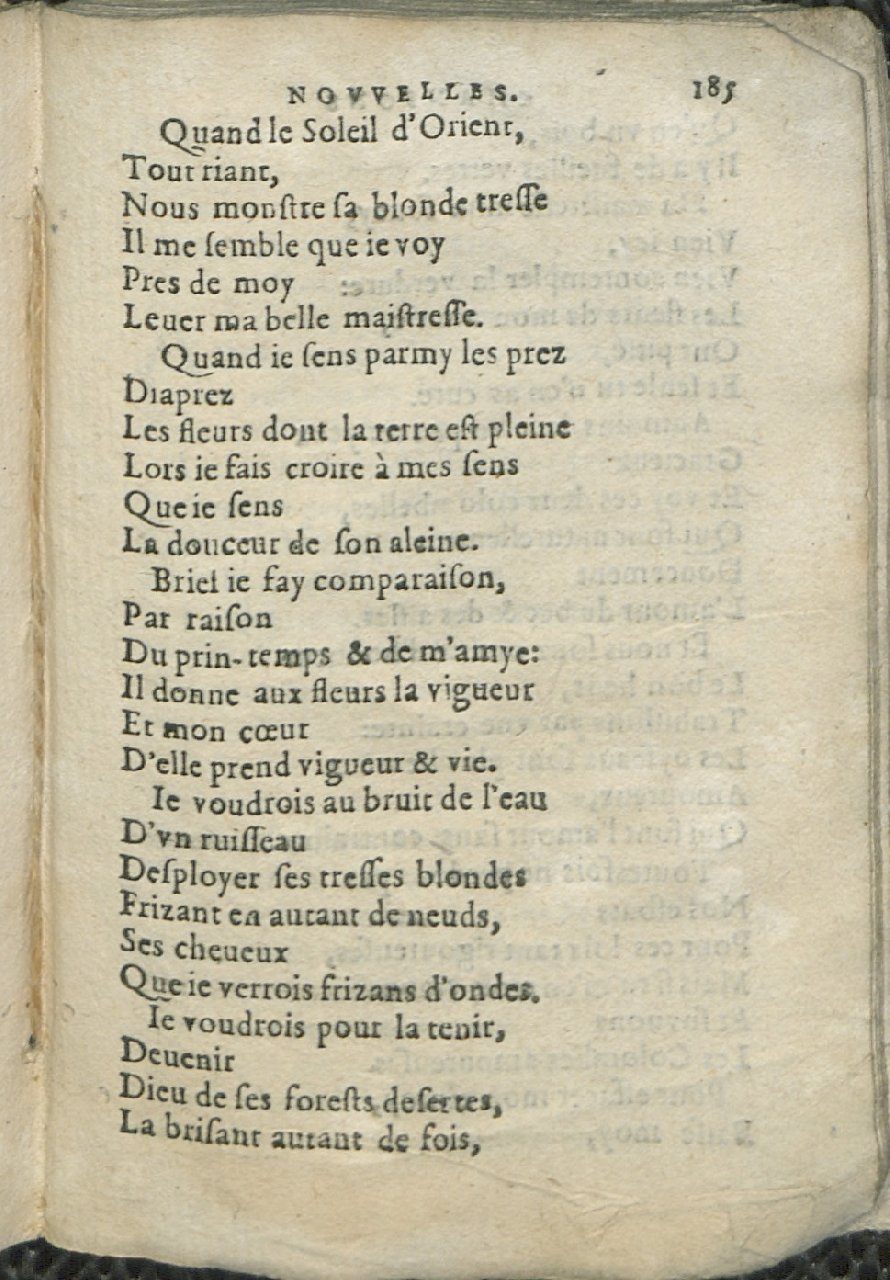 NOVVELLES. 185
Quand le Soleil d'Orient,
Tout riant,
Nous monſtre ſa blonde treſſe
Il me ſemble que ie voy
Pres de moy
Leuer ma belle maiſtreſſe.
Quand ie ſens parmy les prez
Diaprez
Les fleurs dont la terre eſt pleine
Lors ie fais croire à mes ſens
Que ie ſens
La douceur de ſon aleine.
Brief ie fay comparaiſon,
Par raiſon
Du prin-temps & de m'amye:
Il donne aux fleurs la vigueur
Et mon cœur
D'elle prend vigueur & vie.
Ie voudrois au bruit de l'eau
D'vn ruiſſeau
Deſployer ſes treſſes blondes
Frizant en autant de neuds,
Ses cheueux
Que ie verrois frizans d'ondes.
Ie voudrois pour la tenir,
Deuenir
Dieu de ſes foreſts deſertes,
La briſant autant de fois,